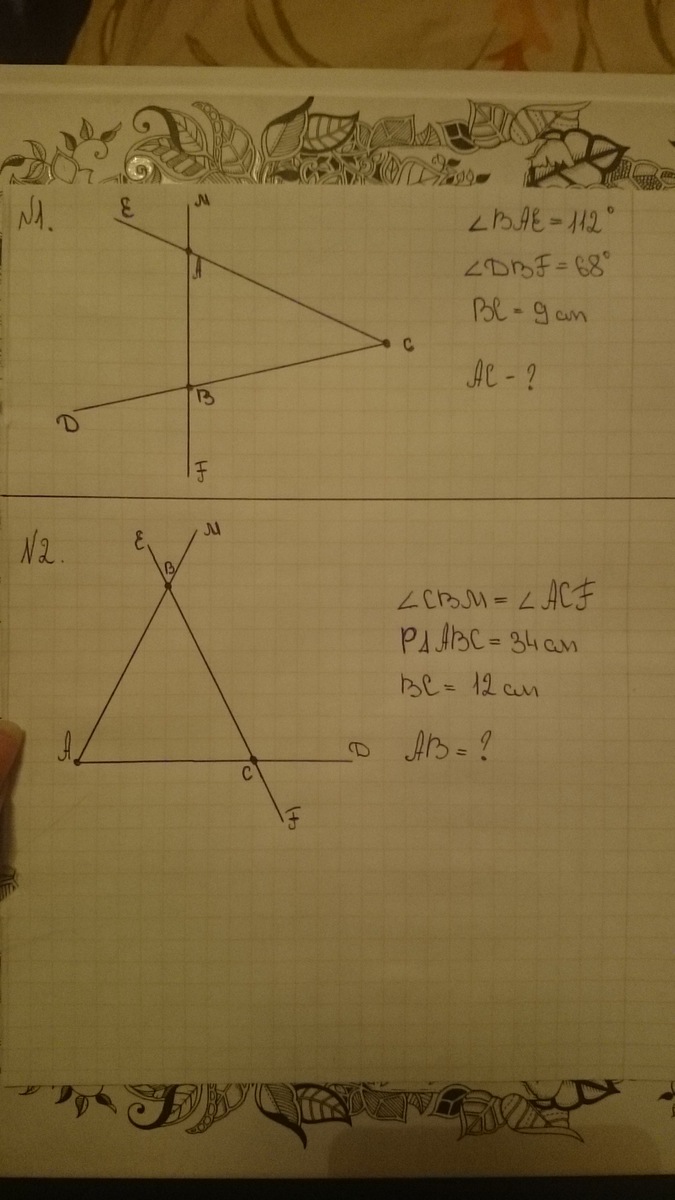 N1.
E
M
A
C
B
D
F
∠BAE = 112°
∠DBF = 68°
BC = 9 см
AC - ?
N2.
E
M
B
A
C
D
F
∠CBM = ∠ACF
P△ABC = 34 см
BC = 12 см
AB = ?